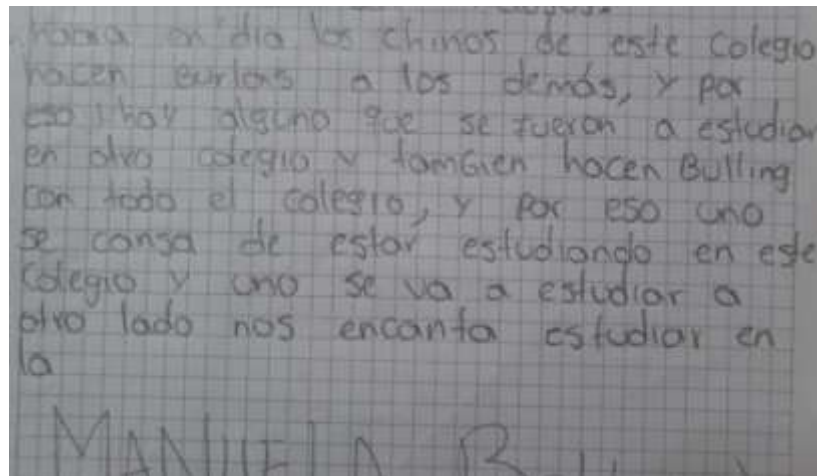 haora en dia los chinos de este colegio
hacen burlas a los demás, y por
eso hay alguno que se fueron a estudiar
en otro colegio y tambien hacen Bulling
con todo el colegio, y por eso uno
se cansa de estar estudiando en este
colegio y uno se va a estudiar a
otro lado nos encanta estudiar en
la
MANUELA B